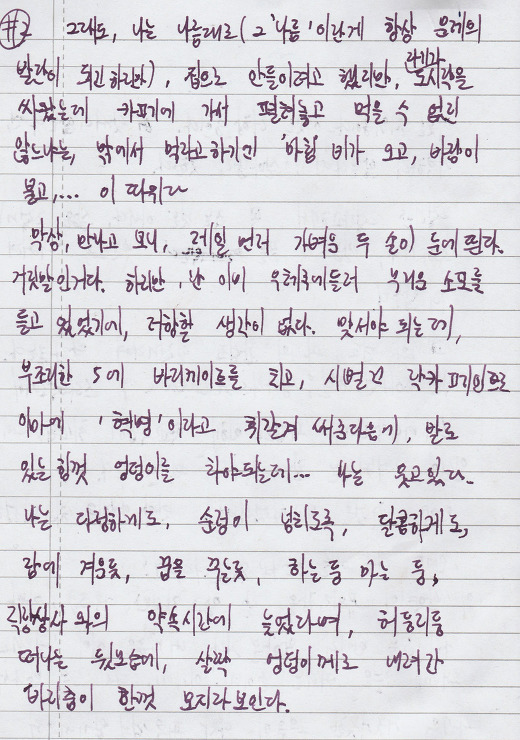 #2 그래도, 나는 나름대로(그 '나름'이란게 항상 문제의
발단이 되긴 하지만), 집으로 만들이려고 했지만, 도시락을
싸왔는데 카페에 가서 펼쳐놓고 먹을 수 없진
않느냐는, 밖에서 먹자고하기엔 '마침' 비가 오고, 바람이
불고,... 이 따위다
막상, 만나고 보니, 제일 먼저 가벼운 두 손이 눈에 띈다.
거짓말인거다. 하지만, 난 이미 우체국에들러 무거운 소포를
들고 있었기에, 저항할 생각이 없다. 맞서야 되는데,
부조리한 5에 바리케이트를 치고, 시뻘건 락카 페인트로
이마에 '혁명'이라고 휘갈겨 써준다음에, 발로
있는힘껏 엉덩이를 차야되는데... 나는 웃고있다.
나는 다정하게도, 숨넘이 넘치도록, 달콤하게도,
잠에 겨운듯, 꿈을 꾸는듯, 하는 둥 마는 둥,
직장상사와의 약속시간에 늦었다며, 허둥지둥
떠나는 뒷모습에, 살짝 엉덩이께로 내려간
바지춤이 한껏 모자라보인다.